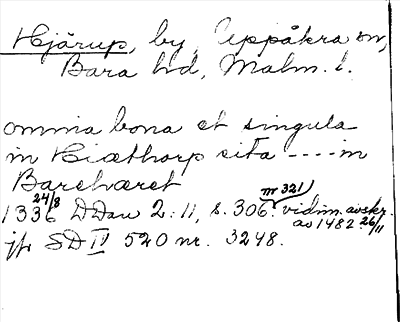 Hjärup, by, Uppåkra sn,
Bara hd, Malm. l.
omnia bona et singula
in Hiæthorp sita ---- in
Barehæret
1336 24/8 DDan 2:11, s. 306. nr 321) vidim. avskr.
av 1482 26/11
jfr SD IV 520 nr. 3248.